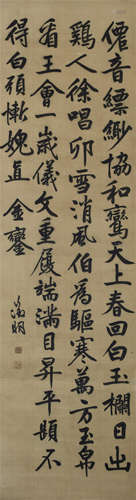 僊音縹緲協和鸞天上春回白玉欄日出
鷄人徐唱卯雪消風伯為驅寒萬方玉帛
看王會一歲儀文重履端滿目昇平題不
得白頭慚媿直金鑾
徵明